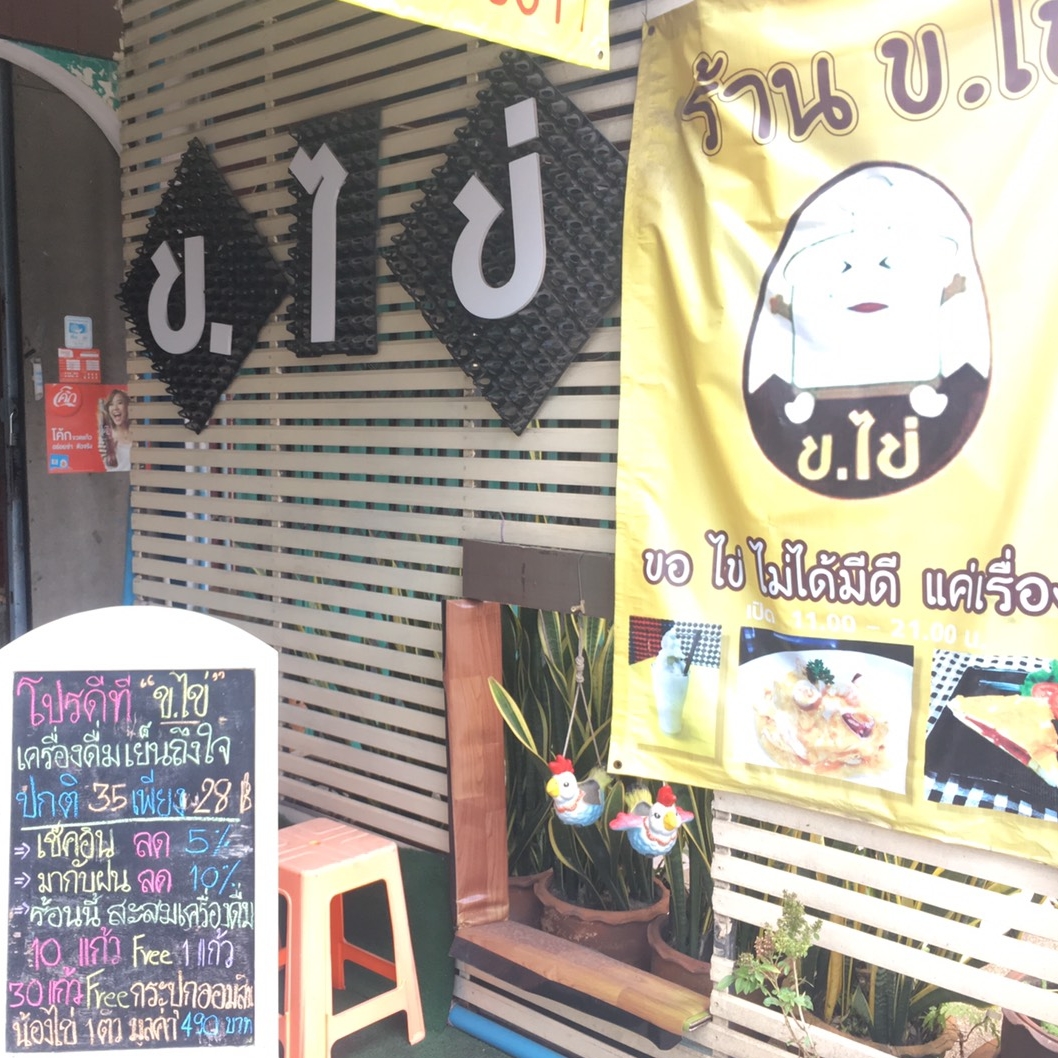 ร้าน ข.ไข่
ข.ไข่
ข.ไข่
ขอ ไข่ ไม่ได้มีดี แค่เรื่อง
เปิด 11.00 - 21.00 น.
โค้ก
โปรดีที่ "ข.ไข่"
เครื่องดื่มเย็นถึงใจ
ปกติ 35 เพียง 28 ฿
⇒ เช็คอิน ลด 5%
⇒ มากับฝน ลด 10%
⇒ ร้อนนี้ สะสมเครื่องดื่ม
10 แก้ว Free 1 แก้ว
30 แก้ว Free กระปุกออมสิน
น้องไข่ 1 ตัว มูลค่า 490 บาท